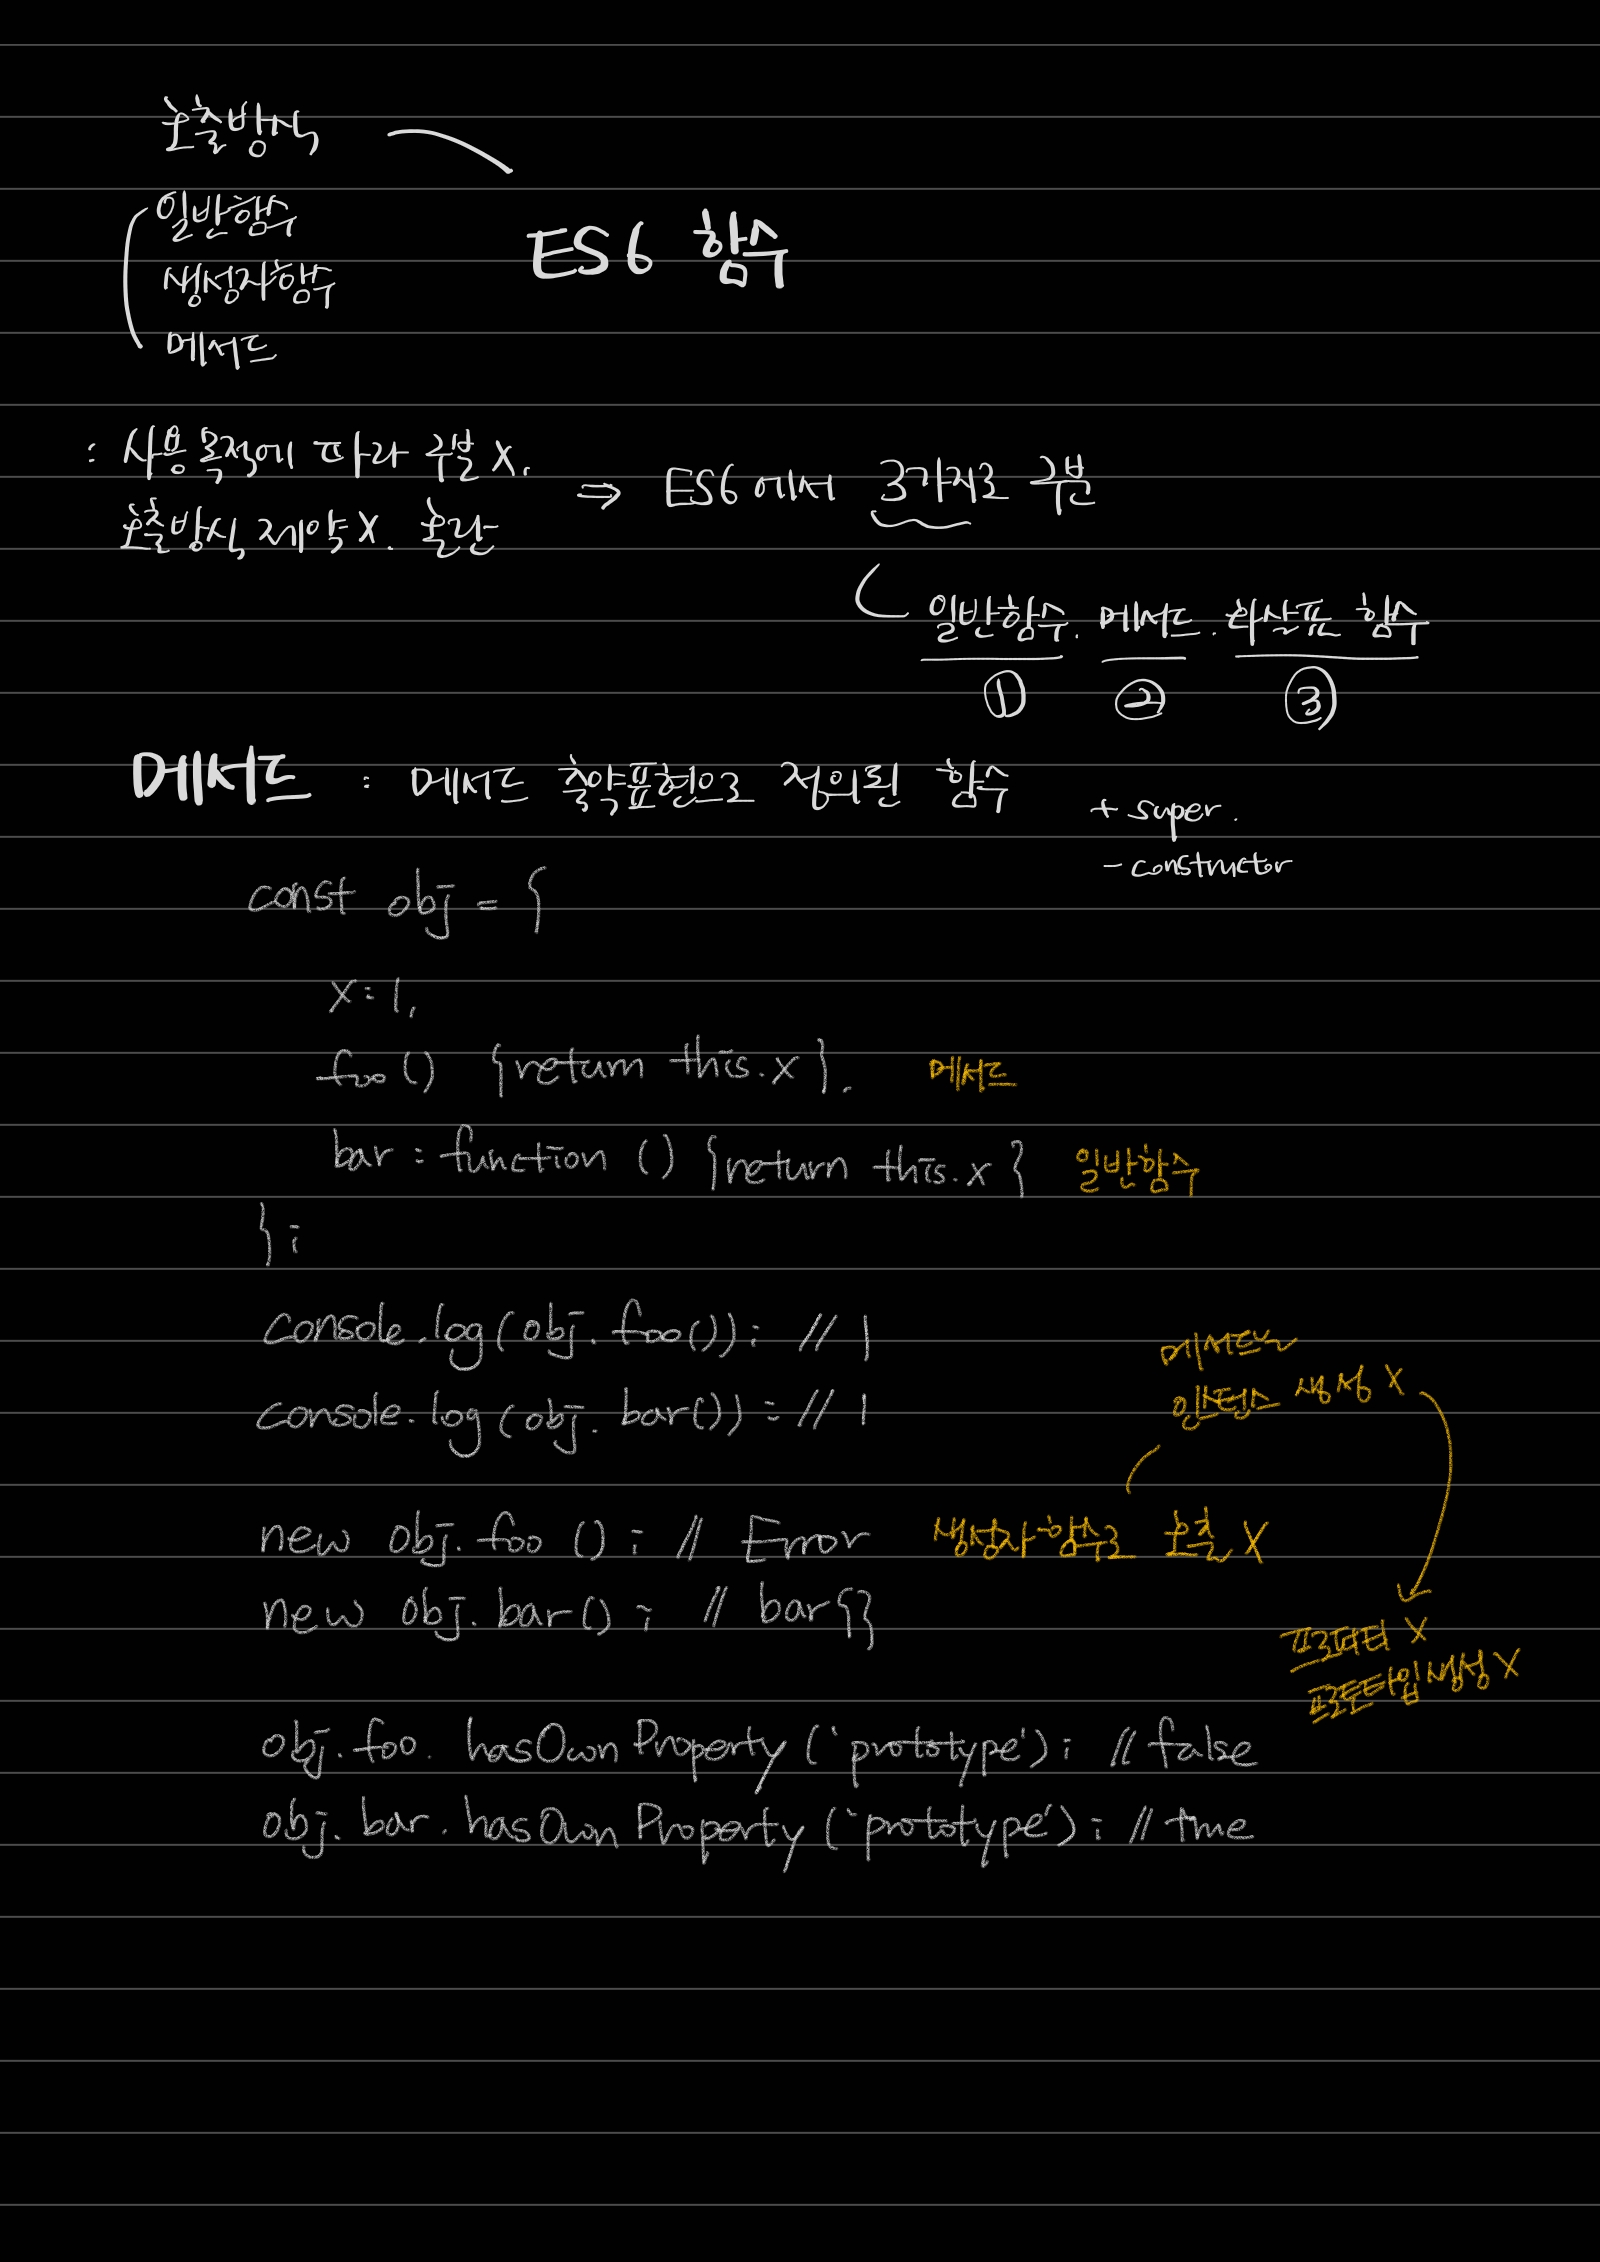 호출방식
일반함수
생성자함수
메서드
ES6 함수
: 사용목적에 따라 구분 X.
호출방식 제약 X. 혼란
⇒ ES6에서 3가지로 구분
일반함수. 메서드. 화살표 함수
① ② ③
메서드 : 메서드 축약표현으로 정의된 함수
+ super.
- constructor
const obj = {
x: 1,
foo() {return this.x}, 메서드
bar : function () {return this.x} 일반함수
};
console.log(obj.foo()); // 1
console.log(obj.bar()); // 1
메서드는
인스턴스 생성 X
new obj.foo(); // Error 생성자함수로 호출 X
new obj.bar(); // bar{}
프로퍼티 X
프로토타입생성 X
obj.foo.hasOwnProperty('prototype'); // false
obj.bar.hasOwnProperty('prototype'); // true